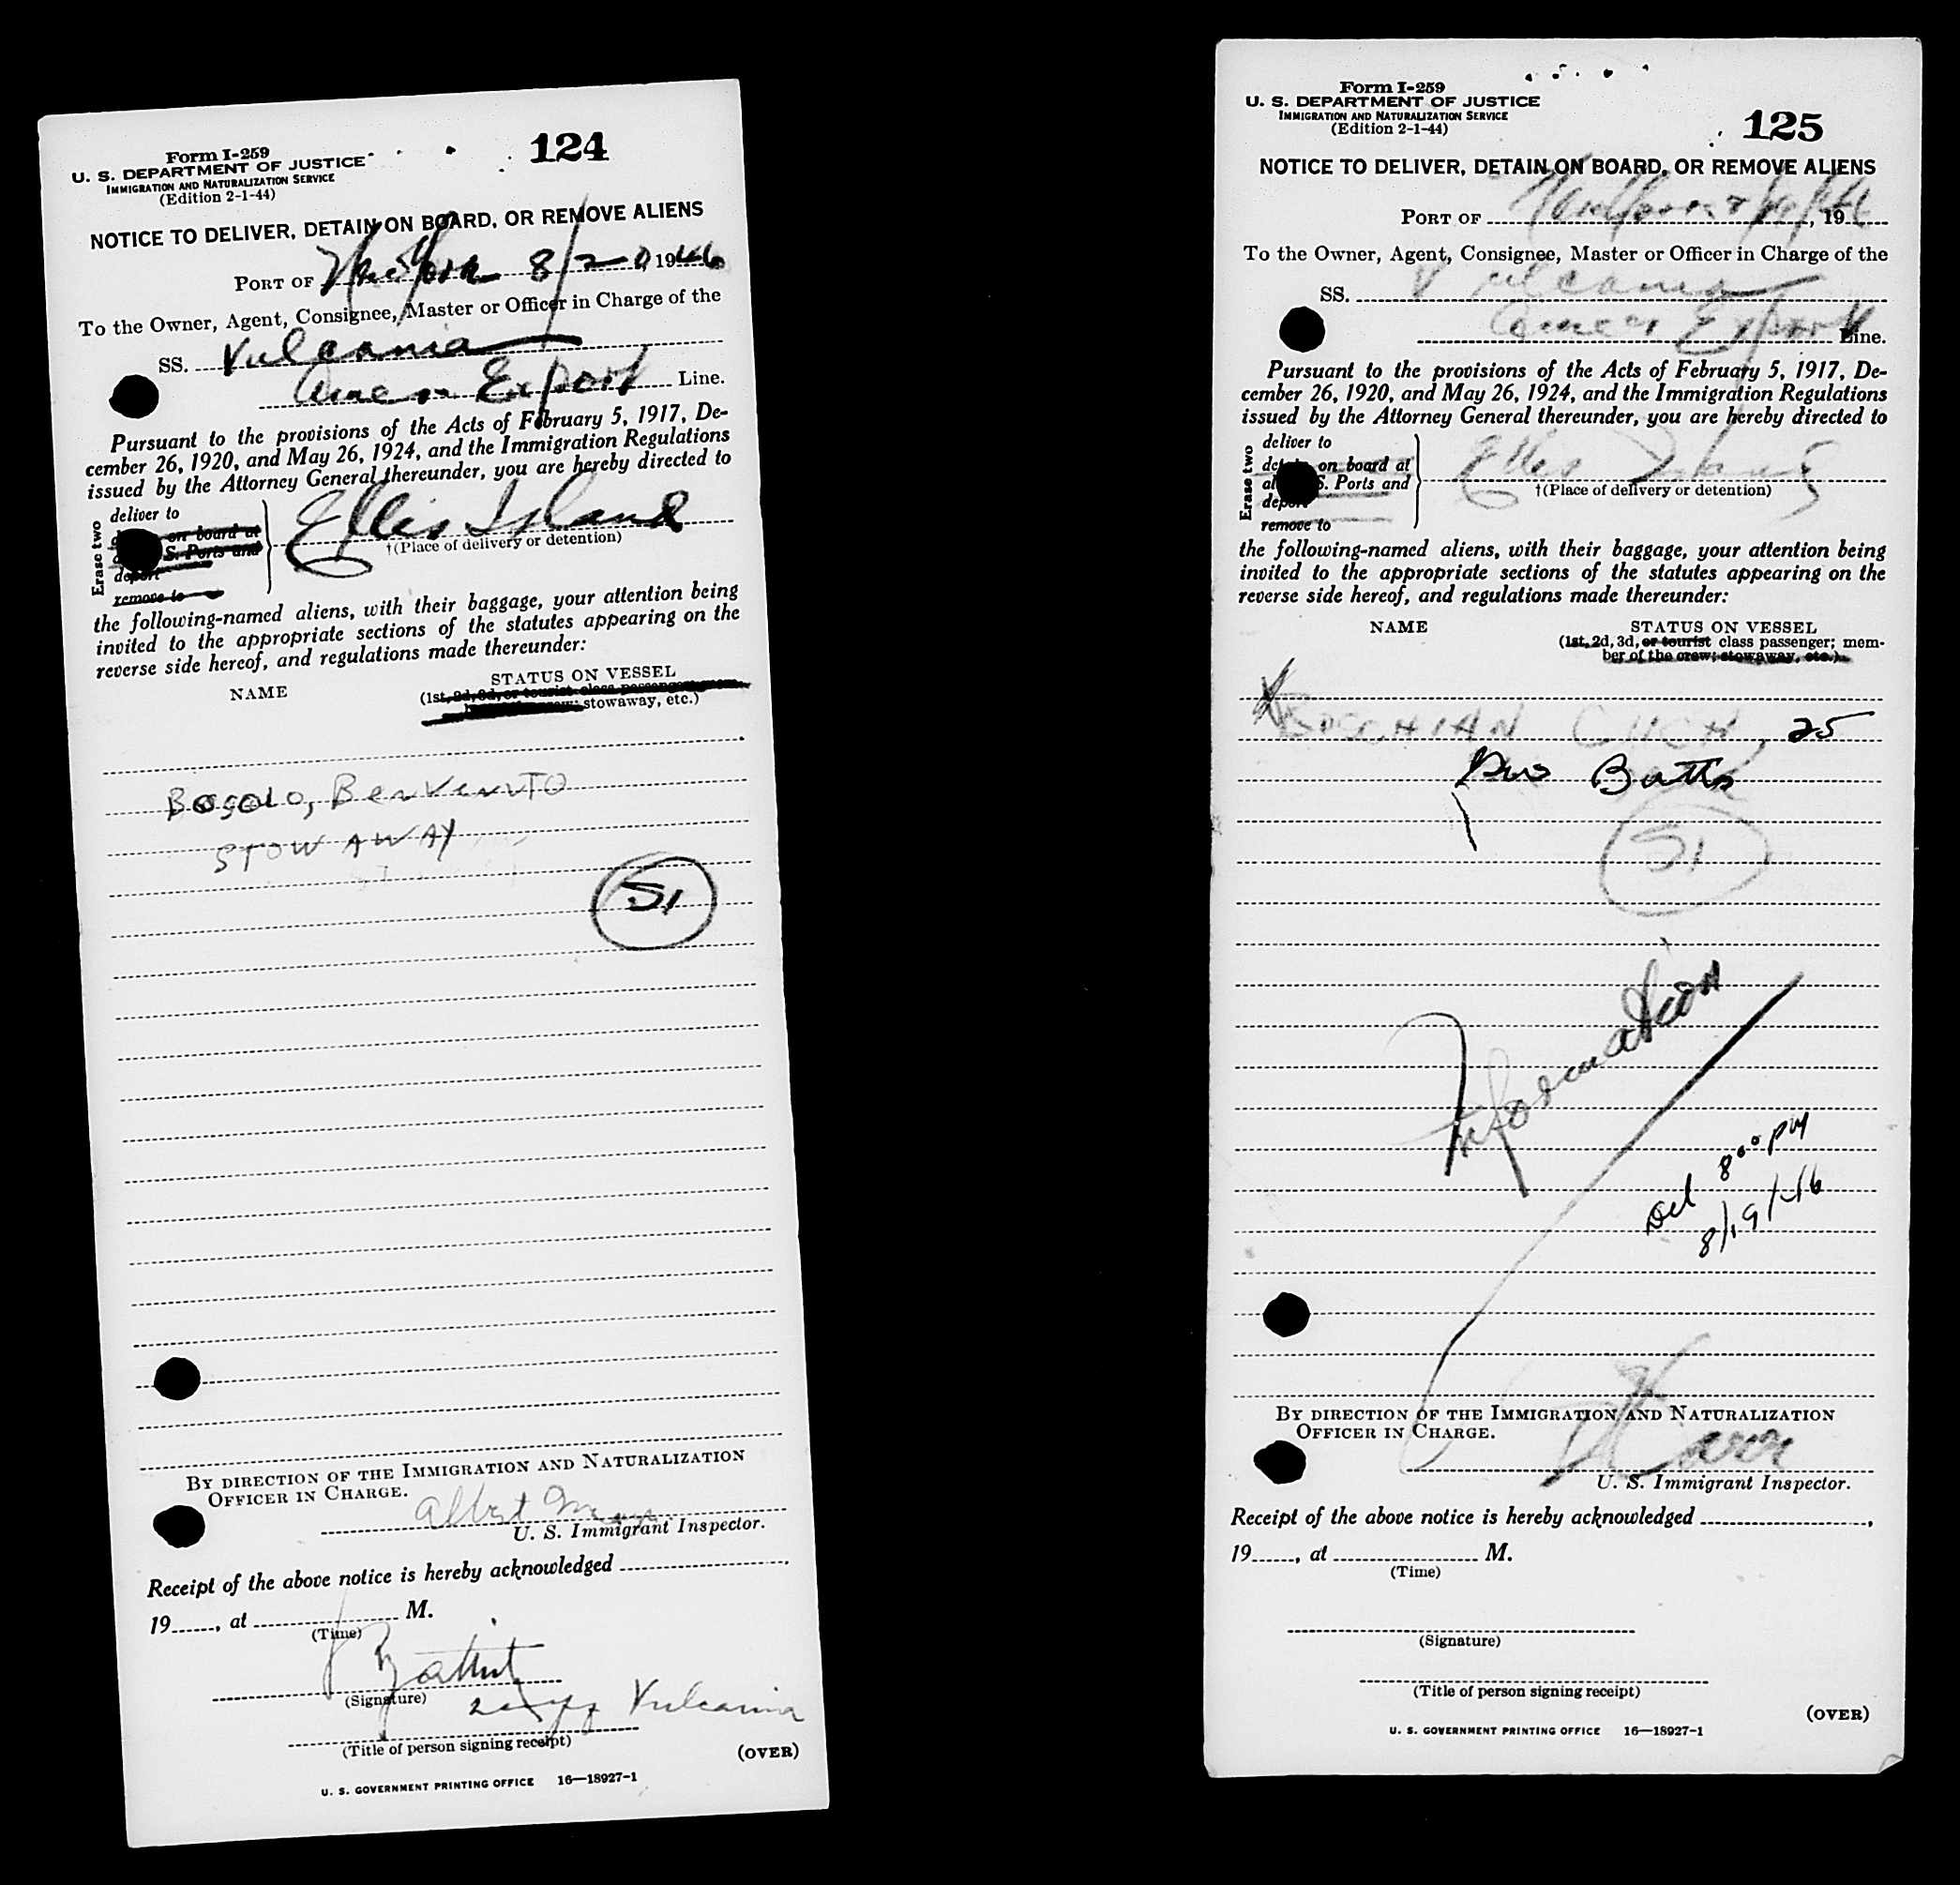 Form I-259
U. S. DEPARTMENT OF JUSTICE
IMMIGRATION AND NATURALIZATION SERVICE
(Edition 2-1-44)
124
NOTICE TO DELIVER, DETAIN ON BOARD, OR REMOVE ALIENS
PORT OF New York 8/20, 1946
To the Owner, Agent, Consignee, Master or Officer in Charge of the
SS. Vulcania
Amer Export Line.
Pursuant to the provisions of the Acts of February 5, 1917, De-
cember 26, 1920, and May 26, 1924, and the Immigration Regulations
issued by the Attorney General thereunder, you are hereby directed to
Erase two
deliver to
on board at
S. Ports and
deport
remove to
Ellis Island
†(Place of delivery or detention)
the following-named aliens, with their baggage, your attention being
invited to the appropriate sections of the statutes appearing on the
reverse side hereof, and regulations made thereunder:
NAME
STATUS ON VESSEL
(1st, 2d, 3d, or tourist class passenger; mem-
stowaway, etc.)
Bogolo, Benvenuto
STOWAWAY
SI
BY DIRECTION OF THE IMMIGRATION AND NATURALIZATION
OFFICER IN CHARGE.
Albert
U. S. Immigrant Inspector.
Receipt of the above notice is hereby acknowledged
19, at M.
(Time)
(Signature)
Vulcania
(Title of person signing receipt)
(OVER)
U. S. GOVERNMENT PRINTING OFFICE 16—18927-1
Form I-259
U. S. DEPARTMENT OF JUSTICE
IMMIGRATION AND NATURALIZATION SERVICE
(Edition 2-1-44)
125
NOTICE TO DELIVER, DETAIN ON BOARD, OR REMOVE ALIENS
PORT OF New York, 19
To the Owner, Agent, Consignee, Master or Officer in Charge of the
SS. Vulcania
Amer Export Line.
Pursuant to the provisions of the Acts of February 5, 1917, De-
cember 26, 1920, and May 26, 1924, and the Immigration Regulations
issued by the Attorney General thereunder, you are hereby directed to
Erase two
deliver to
on board at
S. Ports and
deport
remove to
Ellis Island
†(Place of delivery or detention)
the following-named aliens, with their baggage, your attention being
invited to the appropriate sections of the statutes appearing on the
reverse side hereof, and regulations made thereunder:
NAME
STATUS ON VESSEL
(1st, 2d, 3d, or tourist class passenger; mem-
ber of the crew; stowaway, etc.)
BOSCHIAN 25
SI
Information
Del 8:00 PM
8/19/46
BY DIRECTION OF THE IMMIGRATION AND NATURALIZATION
OFFICER IN CHARGE.
U. S. Immigrant Inspector.
Receipt of the above notice is hereby acknowledged ,
19, at M.
(Time)
(Signature)
(Title of person signing receipt)
(OVER)
U. S. GOVERNMENT PRINTING OFFICE 16—18927-1